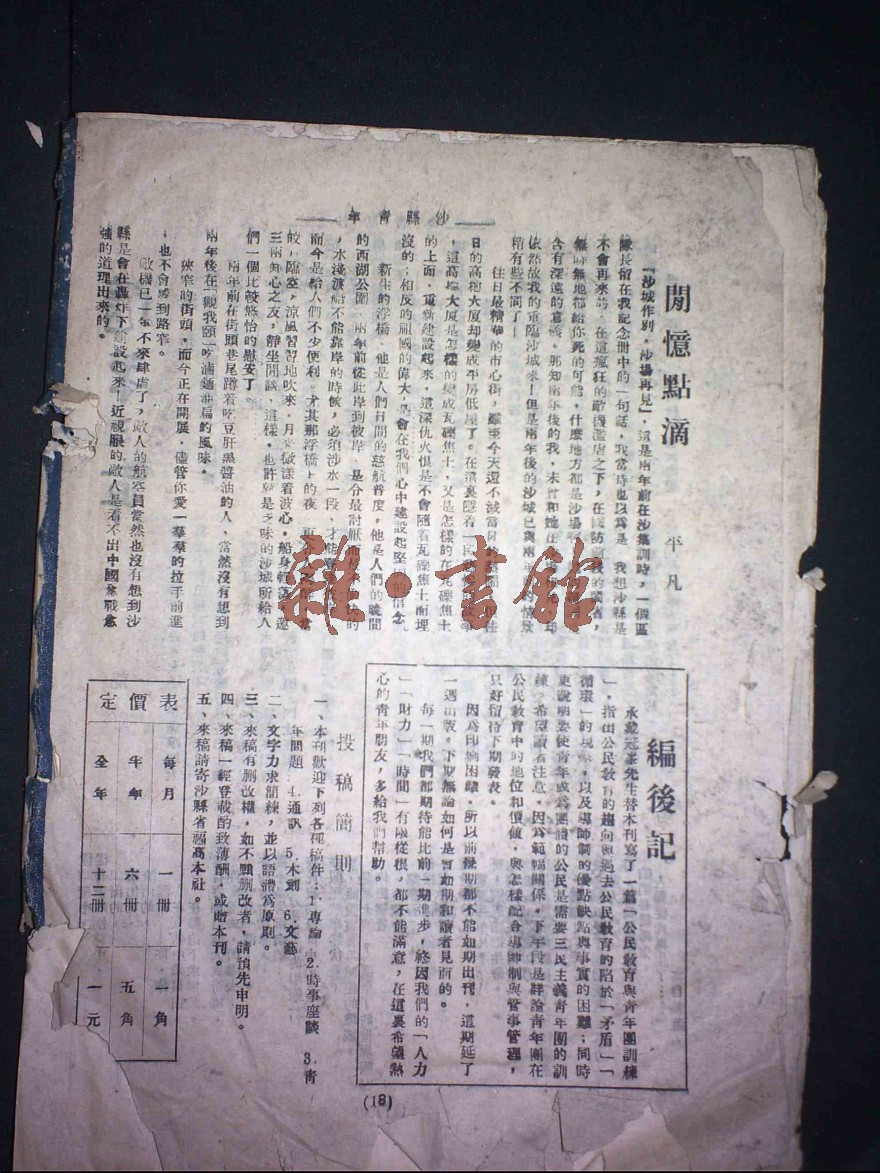 沙縣青年
閒憶點滴
平凡
「沙城作別，沙場再見」，這是兩年前在沙集訓時，一個區
隊長留在我紀念冊中的一句話，我當時也以爲是 我想沙縣是
不會再來的 在這瘋狂的敵機濫虐之下，在
無時無地都給你死的可能，什麼地方都是沙場
含有深遠的意義。那知兩年後的我，未曾和她在
依然故我的重臨沙城來！但是兩年後的沙城已與兩年前的情景
稍有些不同了！
往日最精華的市心街，雖至今天還不減當
日的高穗大厦却變成平房低屋了。在這裏隱着一
，這高穗大厦是怎樣的變成瓦礫焦土，又是怎樣的在瓦礫焦土
的上面，重新建設起來，這深仇火恨是不會隨着瓦礫焦土而埋
沒的；相反的祖國的偉大，是會在我們心中建設起堅 的信念
新生的浮橋，他是人們日間的慈航普度，他是人們的晚間
的西湖公園。兩年前從此岸到彼岸 是分最討厭而
，水淺渡船不能靠岸的時候，必須涉水一段，才能
而今是給人們不少便利。尤其那浮橋上的夜
皎月臨空，凉風習習地吹來，月 微漾着波心，船身輕
三兩知心之友，靜坐閒談，這樣，也許就是乏味的沙城所給人
們一個比較悠怡的慰安了。
兩年前在街頭巷尾蹲着吃豆肝黑醬油的人，當然沒有想到
兩年後在 觀我頤一吟滷麵油扁的風味。
狹窄的街頭，而今正在開展，儘管你愛一羣羣的拉手前進
，也不會感到路窄。
敵機已一年不來肆虐了，敵人的航空員當然也沒有想到沙
縣是會在轟炸下建設起來！近視眼的敵人是看不出中國愈戰愈
強的道理出來的。
編後記
永 冠 先生替本刊寫了一篇「公民教育與青年團訓練
」，指出公民教育的趨向與過去公民教育的陷於「矛盾」「
循環」的現象，以及導師制的優點缺點與事實的困難；同時
更說明要使青年成爲團體的公民是需要三民主義青年團的訓
練，希望讀者注意，因爲範幅關係，下半段是詳論青年團在
公民教育中的地位和價值，與怎樣配合導師制與管事管理，
只好留待下期發表。
因爲印刷困難，所以前幾期都不能如期出刊，這期延了
一週出版。下期無論如何是會如期和讀者見面的。
每一期我們都期待能比前一期進步，終因我們的「人力
」「財力」「時間」有限從根，都不能滿意，在這裏希望熱
心的青年朋友，多給我們幫助。
投稿簡則
一、本刊歡迎下列各種稿件：1.專論 2.時事座談 3.靑
年問題 4.通訊 5.木刻 6.文藝
二、文字力求簡練，並以語體爲原則。
三、來稿有刪改權，如不願删改者，請預先申明。
四、來稿一經登載酌致薄酬，或贈本刊。
五、來稿請寄沙縣省福高本社。
定價表
每月 一冊 一角
半年 六冊 五角
全年 十二冊 一元
(18)
雜·書館